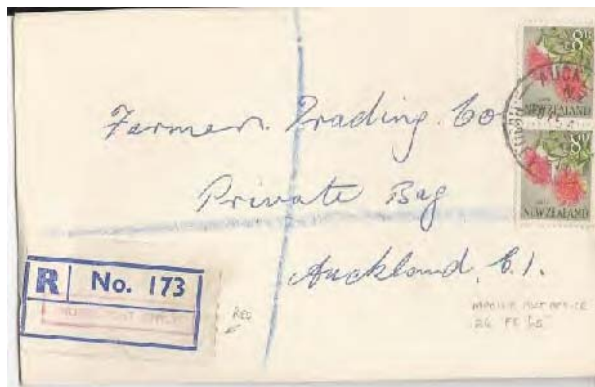 8D
NEW ZEALAND
8D
NEW ZEALAND
Farmers Trading Co
Private Bag
Auckland, C.1.
R No. 173
REG
MOBILE POST OFFICE
26 FE 65